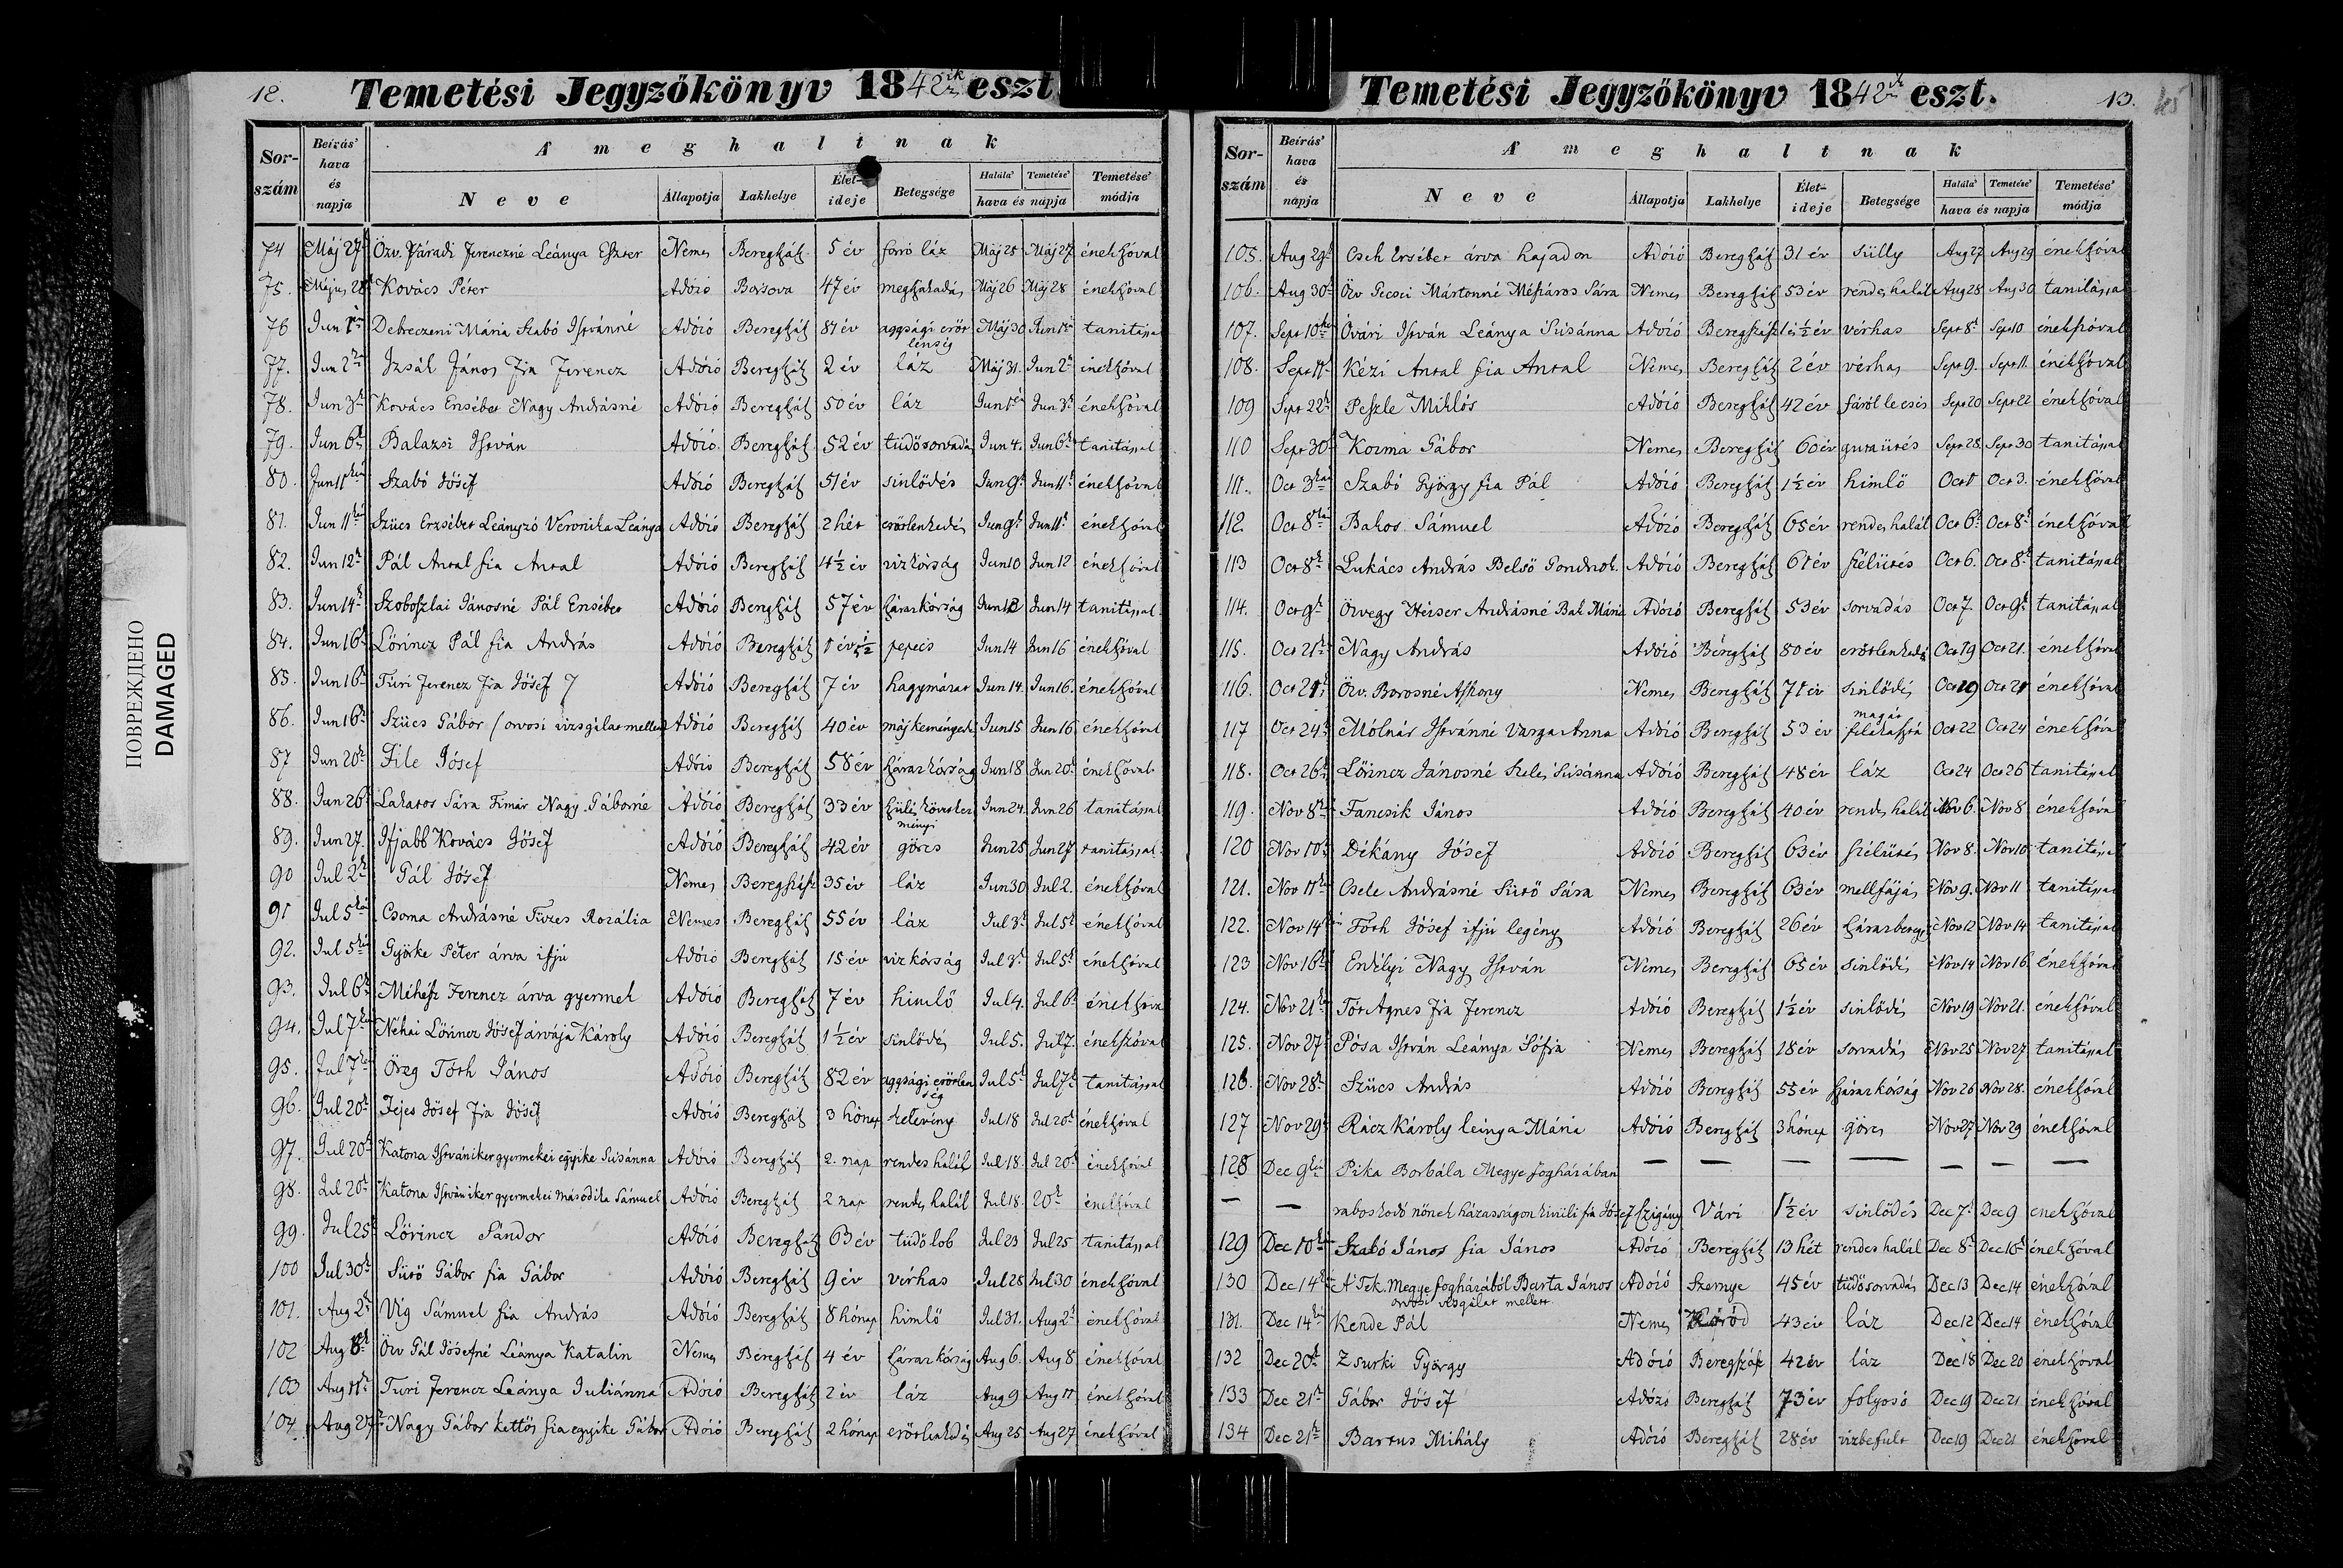 12.
Temetési Jegyzőkönyv 1842ik eszt
Sor-szám
Beírás' hava és napja
A meghaltnak
Neve
Állapotja
Lakhelye
Élet-ideje
Betegsége
Halála' Temetése' hava és napja
Temetése' módja
74 Máj 27 Özv. Váradi Ferenczné Leánya Eszter Nemes Bereghász 5 év forró láz Máj 25 Máj 27 énekszóval
75. Május 28 Kovács Péter Adózó Borsova 47 év meghakadás Máj 26 Máj 28 énekszóval
76 Jun 1 Debreczeni Mária Szabó Istvánné Adózó Beregszász 81 év aggsági erőtlenség Máj 30 Jun 1 tanitással
77. Jun 2 Izsák János fia Ferencz Adózó Beregszász 2 év láz Máj 31. Jun 2 énekszóval
78. Jun 3 Kovács Ersébet Nagy Andrásné Adózó Beregszász 50 év láz Jun 1 Jun 3 énekszóval
79. Jun 6 Balazsi István Adózó Beregszász 52 év tüdősorvadás Jun 4. Jun 6 tanitással
80. Jun 11 Szabó Jósef Adózó Beregszász 51 év sinlődés Jun 9 Jun 11 énekszóval
81. Jun 11 Szücs Erzsébet Leányzó Veronika Leánya Adózó Beregszász 2 hét erőtlenkedés Jun 9 Jun 11 énekszóval
82. Jun 12 Pál Antal fia Antal Adózó Beregszász 4½ év vizkórság Jun 10 Jun 12 énekszóval
83. Jun 14 Szoboszlai Jánosné Pál Ersébet Adózó Beregszász 57 év szárazkórság Jun 12 Jun 14 tanitással
84. Jun 16 Lőrincz Pál fia András Adózó Beregszász 1 év ½ pepecs Jun 14 Jun 16 énekszóval
85. Jun 16 Türi Ferencz fia Jósef Adózó Beregszász 7 év hagymáz Jun 14. Jun 16. énekszóval
86. Jun 16 Szücs Gábor / orvosi vizsgálat mellett Adózó Beregszász 40 év májkeményedés Jun 15 Jun 16 énekszóval
87 Jun 20 File Jósef Adózó Beregszász 58 év szárazkórság Jun 18 Jun 20 énekszóval
88. Jun 26 Lakatos Sára Nagy Gáborné Adózó Beregszász 33 év szülés következményei Jun 24. Jun 26 tanitással
89. Jun 27. Ifjabb Kovács Jósef Adózó Beregszász 42 év görcs Jun 25 Jun 27 tanitással
90 Jul 2 Gál Jósef Nemes Beregszász 35 év láz Jun 30 Jul 2. énekszóval
91 Jul 5 Csoma Andrásné Füzes Rozália Nemes Beregszász 55 év láz Jul 3 Jul 5 énekszóval
92. Jul 5 Györke Péter árva ifjú Adózó Beregszász 15 év vizkórság Jul 3 Jul 5 énekszóval
93. Jul 6 Méhész Ferencz árva gyermek Adózó Beregszász 7 év himlő Jul 4. Jul 6 énekszóval
94. Jul 7 Néhai Lőrincz Jósef árvája Károly Adózó Beregszász 1½ év sinlődés Jul 5. Jul 7. énekszóval
95. Jul 7 Öreg Tóth János Adózó Beregszász 82 év aggsági erőtlenség Jul 5 Jul 7 tanitással
96. Jul 20 Fejes Jósef fia Jósef Adózó Beregszász 3 hónap kelevény Jul 18 Jul 20 énekszóval
97. Jul 20 Katona István iker gyermekei egyike Susánna Adózó Beregszász 2. nap rendes halál Jul 18. Jul 20 énekszóval
98. Jul 20 Katona István iker gyermekei másodika Sámuel Adózó Beregszász 2 nap rendes halál Jul 18. 20 énekszóval
99. Jul 25 Lőrincz Sándor Adózó Beregszász 63 év tüdőlob Jul 23 Jul 25 tanitással
100 Jul 30 Sütő Gábor fia Gábor Adózó Beregszász 9 év vérhas Jul 28 Jul 30 énekszóval
101. Aug 2 Víg Sámuel fia András Adózó Beregszász 8 hónap himlő Jul 31. Aug 2 énekszóval
102 Aug 8 Özv Gál Jósefné Leánya Katalin Nemes Beregszász 4 év szárazkórság Aug 6. Aug 8 énekszóval
103 Aug 11 Turi Ferencz Leánya Juliánna Adózó Beregszász 2 év láz Aug 9 Aug 11 énekszóval
104 Aug 27 Nagy Gábor kettős fia egyike Gábor Adózó Beregszász 2 hónap erőtlenkedés Aug 25 Aug 27 énekszóval
Temetési Jegyzőkönyv 1842ik eszt.
13.
Sor-szám
Beírás' hava és napja
A meghaltnak
Neve
Állapotja
Lakhelye
Élet-ideje
Betegsége
Halála' Temetése' hava és napja
Temetése' módja
105. Aug 29 Cseh Ersébet árva hajadon Adózó Beregszász 31 év sülly Aug 27 Aug 29 énekszóval
106. Aug 30 Özv Gecsei Mártonné Mészáros Sára Nemes Beregszász 53 év rendes halál Aug 28 Aug 30 tanitással
107. Sept 10 Óvári István Leánya Susánna Adózó Beregszász 1 és ½ év vérhas Sept 8 Sept 10 énekszóval
108. Sept 11 Kézi Antal fia Antal Nemes Beregszász 2 év vérhas Sept 9. Sept 11. énekszóval
109 Sept 22 Peszle Miklós Adózó Beregszász 42 év fáról leesés Sept 20 Sept 22 énekszóval
110 Sept 30 Kozma Gábor Nemes Beregszász 60 év gutaütés Sept 28. Sept 30 tanitással
111. Oct 3 Szabó György fia Pál Adózó Beregszász 1½ év himlő Oct 1 Oct 3. énekszóval
112. Oct 8 Bakos Sámuel Adózó Beregszász 65 év rendes halál Oct 6 Oct 8 énekszóval
113 Oct 8 Lukács András Belső Gondnok. Adózó Beregszász 61 év szélütés Oct 6. Oct 8 tanitással
114. Oct 9 Özvegy Heiser Andrásné Bak Mária Adózó Beregszász 53 év sorvadás Oct 7. Oct 9 tanitással
115. Oct 21 Nagy András Adózó Beregszász 80 év erőtlenkedés Oct 19 Oct 21. énekszóval
116. Oct 21 Özv. Borosné Asszony Nemes Beregszász 71 év sinlődés Oct 19 Oct 21 énekszóval
117 Oct 24 Mólnár Istvánné Varga Anna Adózó Beregszász 53 év magát felakasztá Oct 22 Oct 24 énekszóval
118. Oct 26 Lőrincz Jánosné Szeles Susánna Adózó Beregszász 48 év láz Oct 24 Oct 26 tanitással
119. Nov 8 Fancsik János Adózó Beregszász 40 év rendes halál Nov 6. Nov 8 énekszóval
120 Nov 10 Dékány Jósef Adózó Beregszász 63 év szélütés Nov 8. Nov 10 tanitással
121. Nov 11 Csete Andrásné Sütő Sára Nemes Beregszász 63 év mellfájás Nov 9. Nov 11 tanitással
122. Nov 14 Tóth Jósef ifjú legény Adózó Beregszász 26 év szárazbetegs Nov 12 Nov 14 tanitással
123 Nov 16 Erdélyi Nagy István Nemes Beregszász 65 év sinlődés Nov 14 Nov 16 énekszóval
124. Nov 21 Tót Agnes fia Ferencz Adózó Beregszász 1½ év sinlődés Nov 19 Nov 21. énekszóval
125. Nov 27 Pósa István Leánya Sófia Nemes Beregszász 18 év sorvadás Nov 25 Nov 27 tanitással
126. Nov 28 Szücs András Adózó Beregszász 55 év szárazkórság Nov 26 Nov 28. énekszóval
127 Nov 29 Rácz Károly leánya Mária Adózó Beregszász 3 hónap görcs Nov 27 Nov 29 énekszóval
128 Dec 9 Pika Borbála Megye fogházában — — — — — — —
— — raboskodó nőnek házasságon kívüli fia Jósef Czigány Vári 1½ év sinlődés Dec 7 Dec 9 énekszóval
129 Dec 10 Szabó János fia János Adózó Beregszász 13 hét rendes halál Dec 8 Dec 10 énekszóval
130 Dec 14 A Tek. Megye fogházából Barta János Adózó Szernye 45 év tüdősorvadás Dec 13 Dec 14 énekszóval
orvosi vizsgálat mellett
131. Dec 14 Kende Pál Nemes Kóród 43 év láz Dec 12 Dec 14 énekszóval
132 Dec 20 Zsurki György Adózó Beregszász 42 év láz Dec 18 Dec 20 énekszóval
133 Dec 21 Gábor Jósef Adózó Beregszász 73 év folyosó Dec 19 Dec 21 énekszóval
134 Dec 21 Bartus Mihály Adózó Beregszász 28 év vizbefult Dec 19 Dec 21 énekszóval
ПОВРЕЖДЕНО
DAMAGED